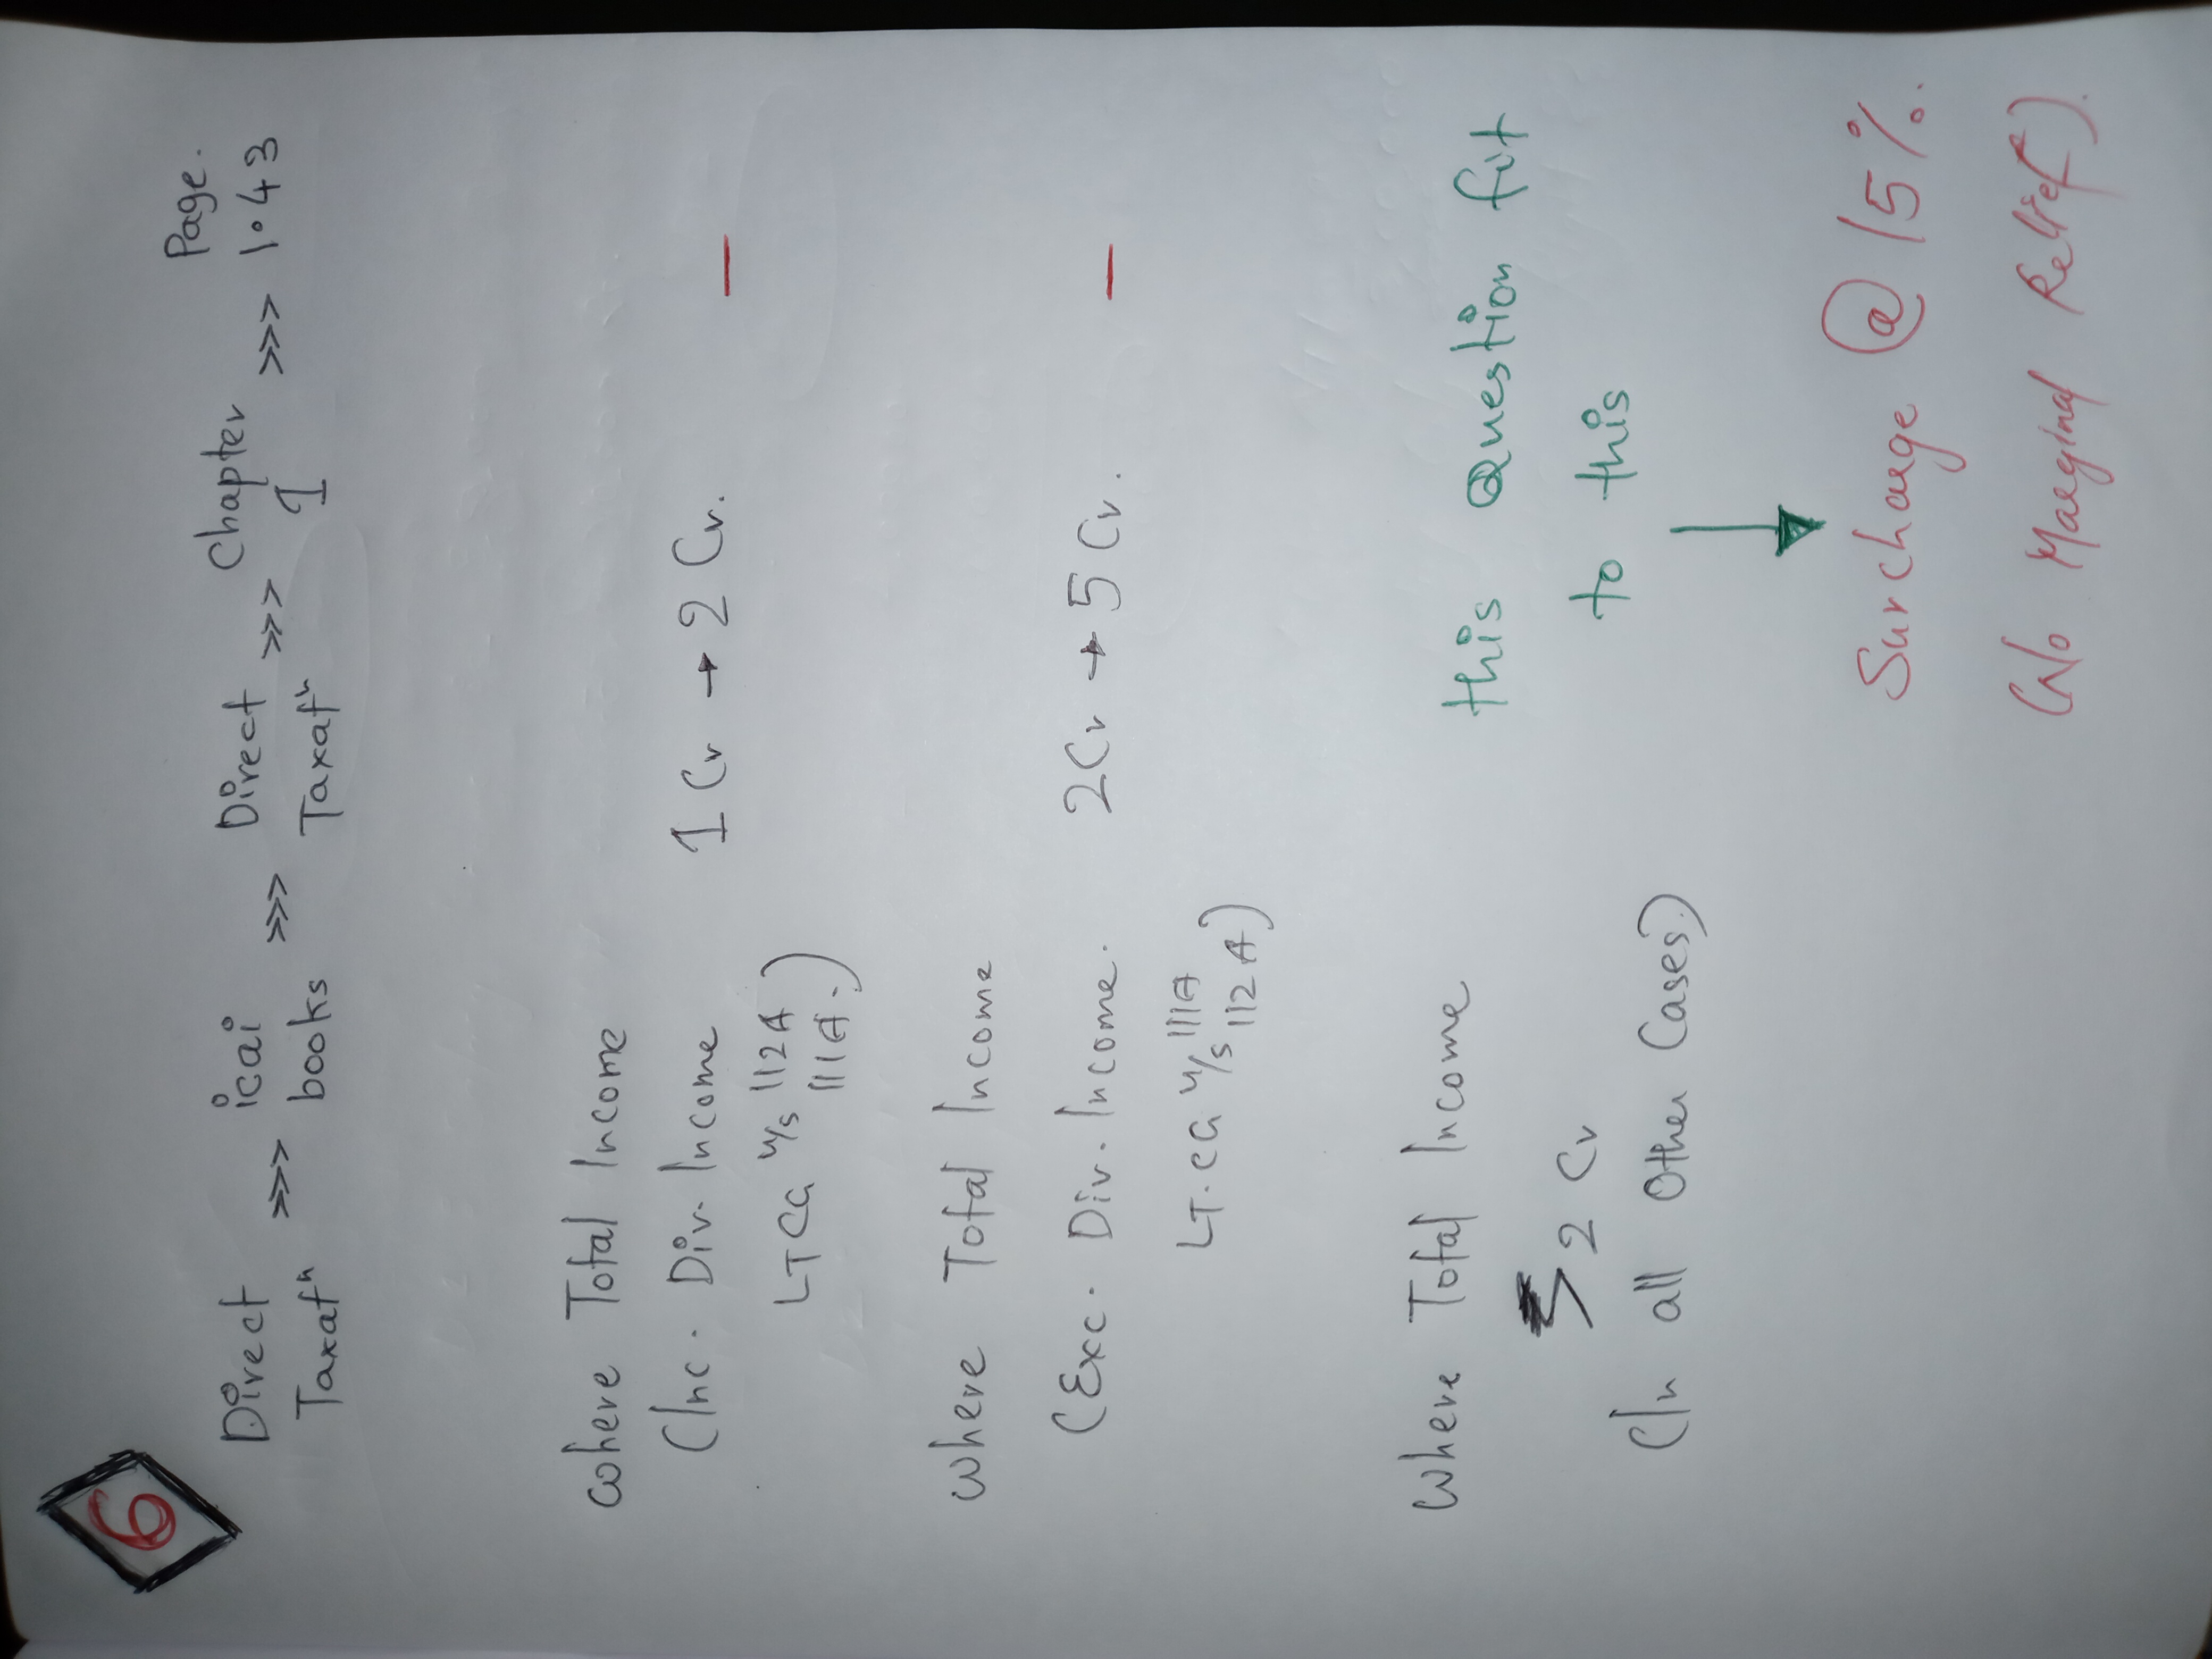 6
Direct >>> icai >>> Direct >>> Chapter >>> Page.
Taxatⁿ books Taxatⁿ 1 1.43
Where Total Income
(Inc. Div. Income 1 Cr → 2 Cr. —
LTCG u/s 112A
111A.)
Where Total Income
(Exc. Div. Income. 2 Cr → 5 Cr. —
LT.CG u/s 111A
112A)
Where Total Income this Question fit
> 2 Cr to this
(In all Other Cases)
Surcharge @ 15%.
(No Marginal Relief).